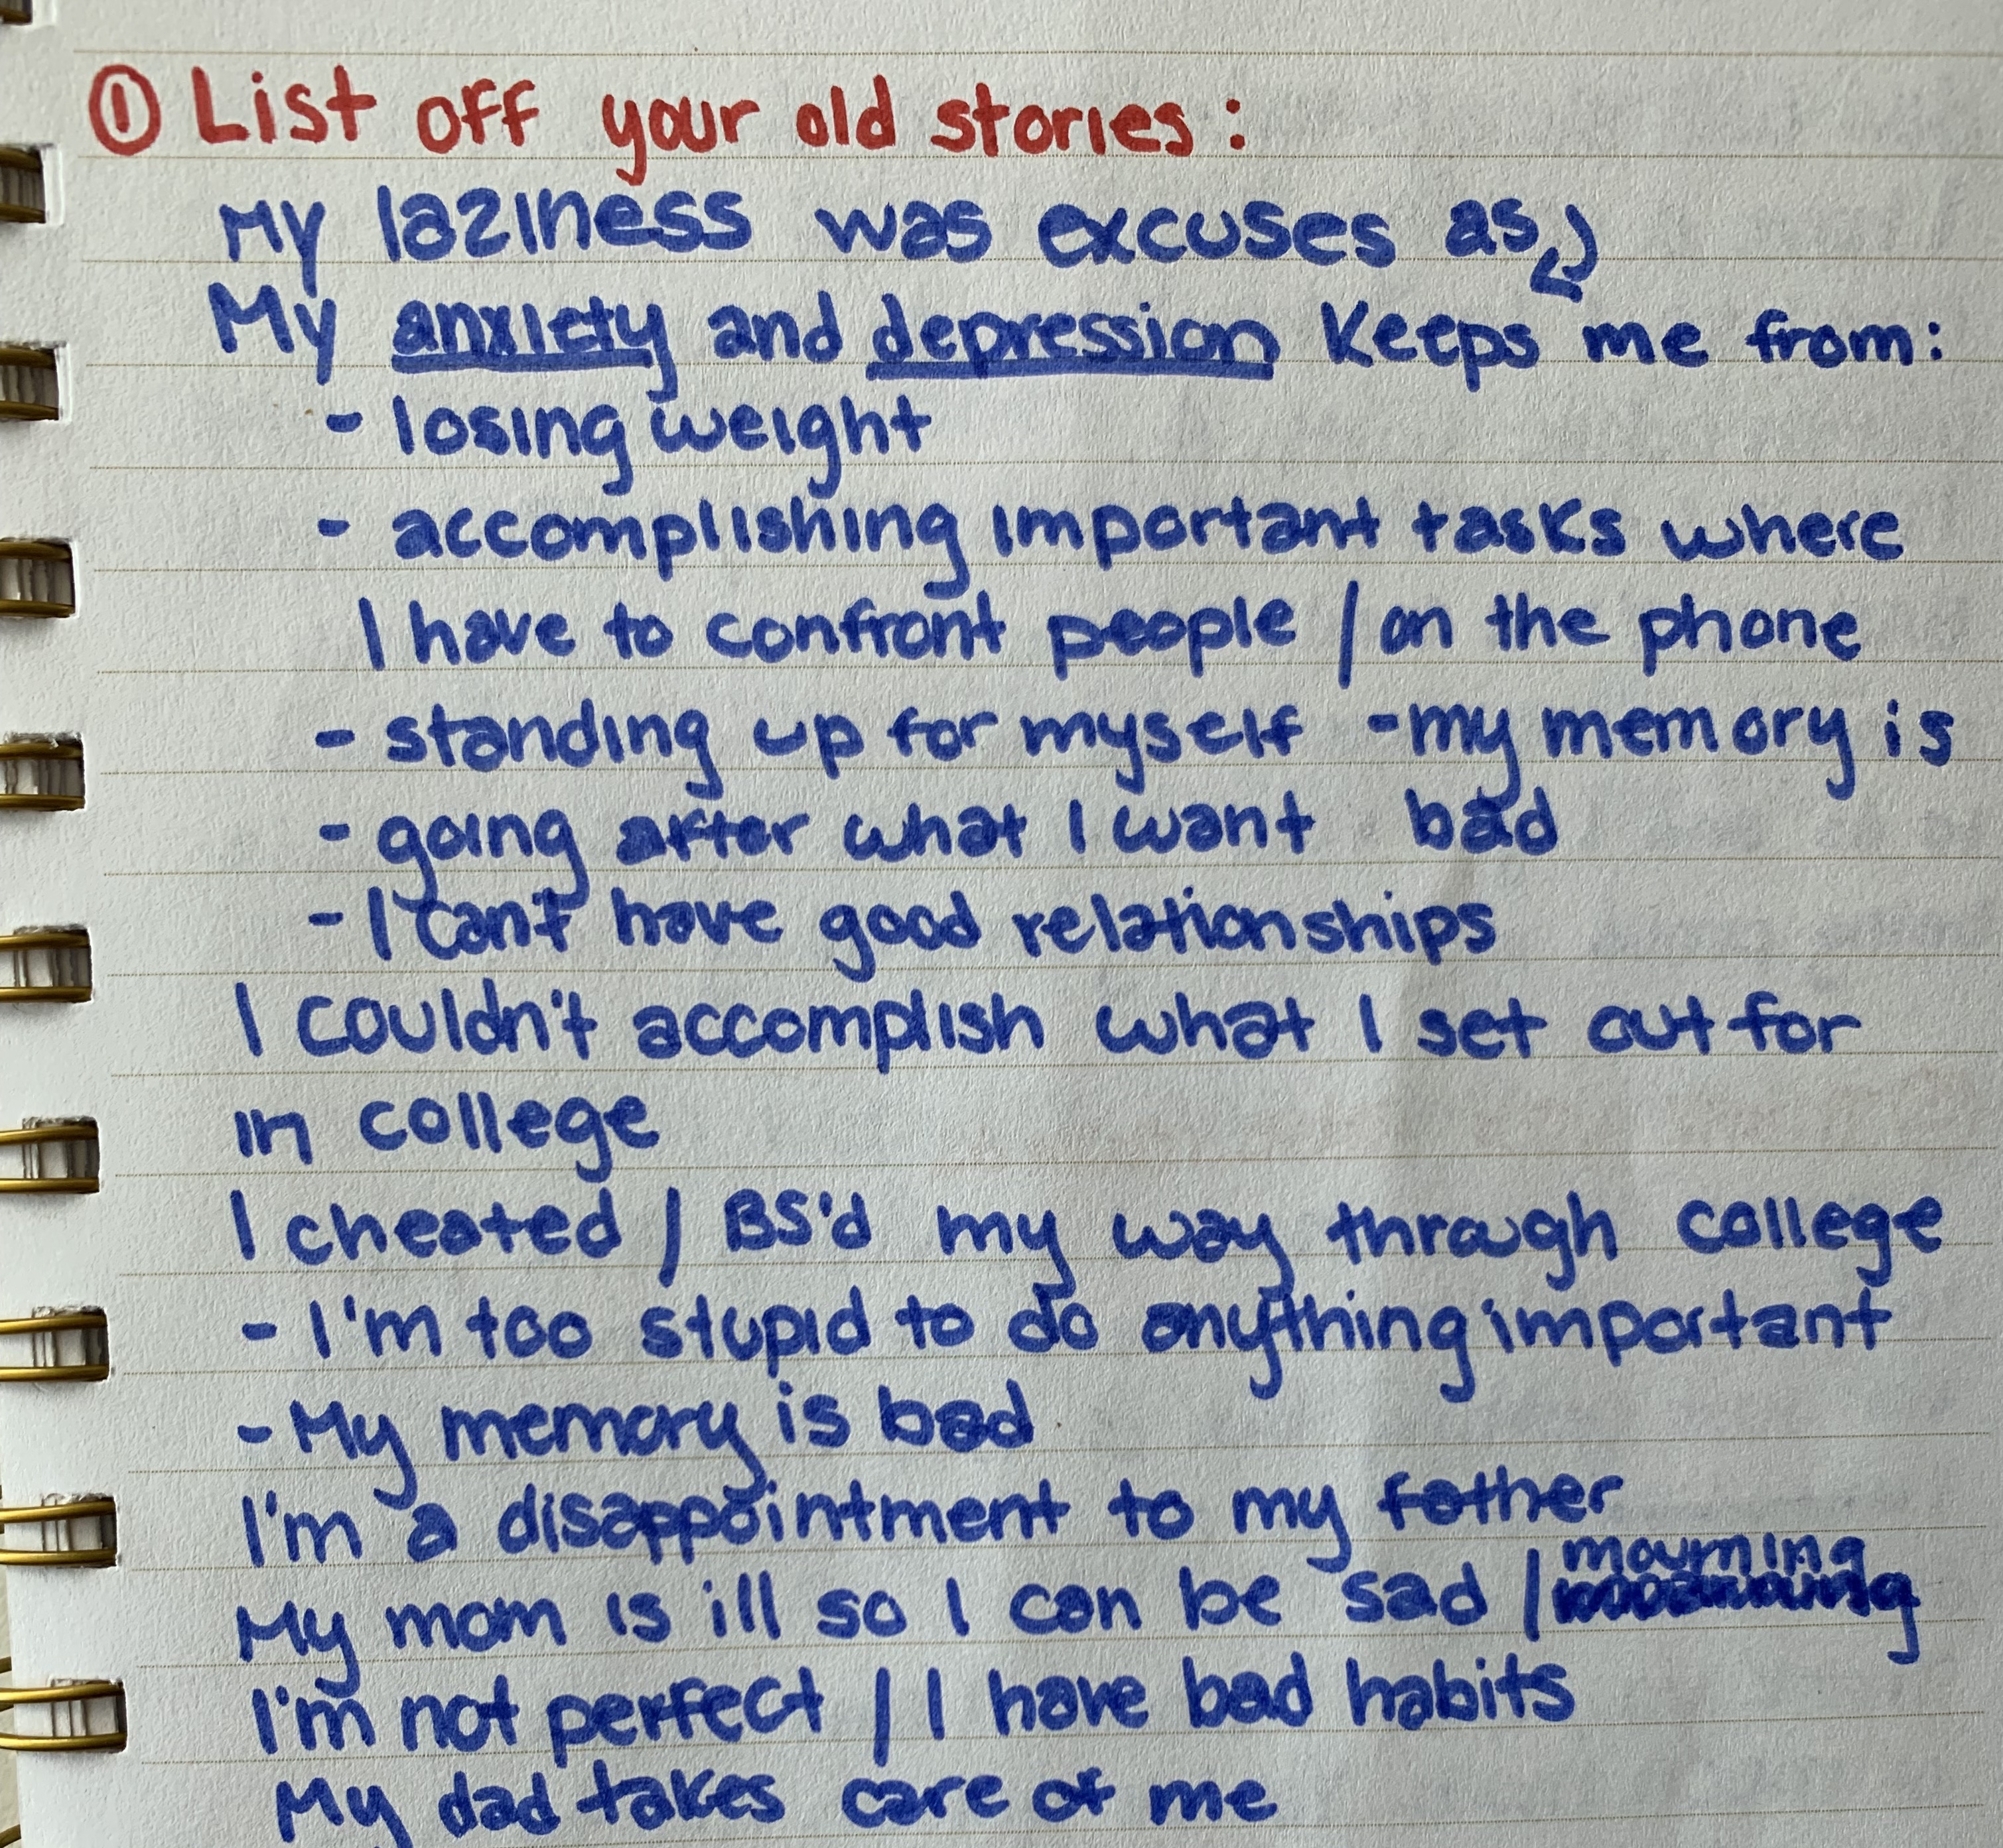 ① List off your old stories:
My laziness was excuses as
My anxiety and depression keeps me from:
- losing weight
- accomplishing important tasks where
I have to confront people / on the phone
- standing up for myself - my memory is
- going after what I want bad
- I can't have good relationships
I couldn't accomplish what I set out for
in college
I cheated / BS'd my way through college
- I'm too stupid to do anything important
- My memory is bad
I'm a disappointment to my father
My mom is ill so I can be sad / mourning
I'm not perfect / I have bad habits
My dad takes care of me